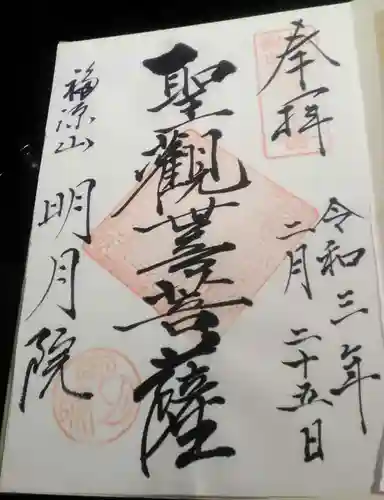 奉拝
令和三年
二月二十五日
聖觀世菩薩
福源山
明月院